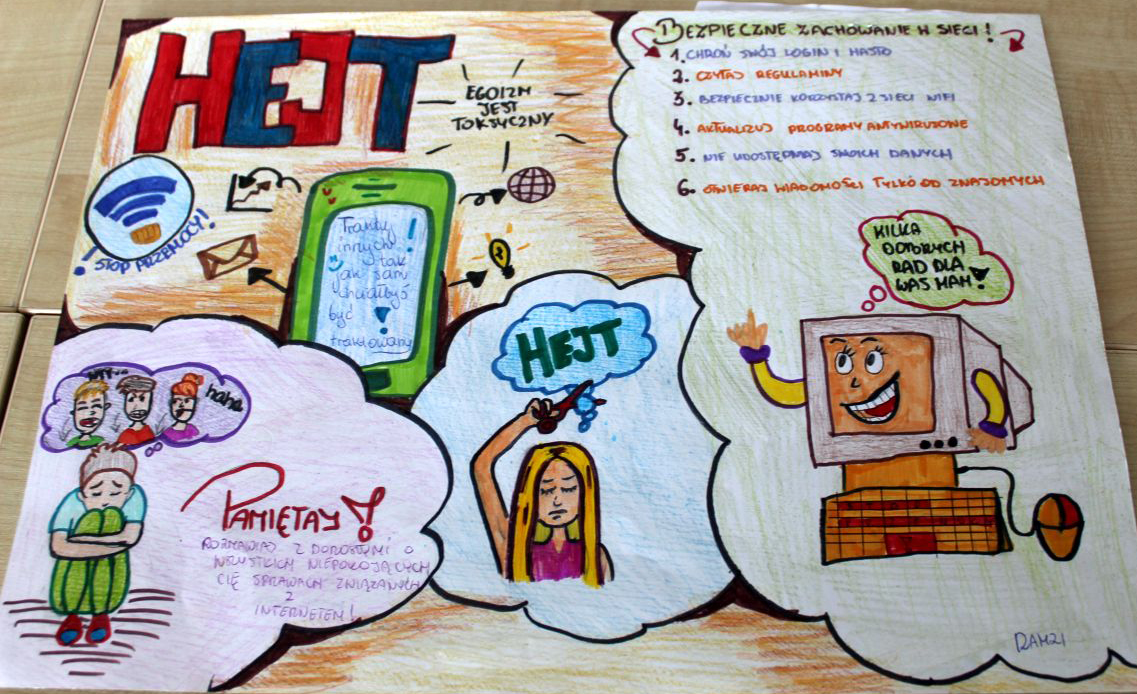 HEJT
EGOIZM
JEST
TOKSYCZNY
STOP PRZEMOCY!
Traktuj
innych
tak
jak sam
chciałbyś
być
traktowany!
BEZPIECZNE ZACHOWANIE W SIECI!
1. CHROŃ SWÓJ LOGIN I HASŁO
2. CZYTAJ REGULAMINY
3. BEZPIECZNIE KORZYSTAJ Z SIECI WIFI
4. AKTUALIZUJ PROGRAMY ANTYWIRUSOWE
5. NIE UDOSTĘPNIAJ SWOICH DANYCH
6. OTWIERAJ WIADOMOŚCI TYLKO OD ZNAJOMYCH
KILKA
DOBRYCH
RAD DLA
WAS MAM!
HEJT
haha
PAMIĘTAJ!
ROZMAWIAJ Z DOROSŁYMI O
WSZYSTKICH NIEPOKOJĄCYCH
CIĘ SPRAWACH ZWIĄZANYCH
Z
INTERNETEM!